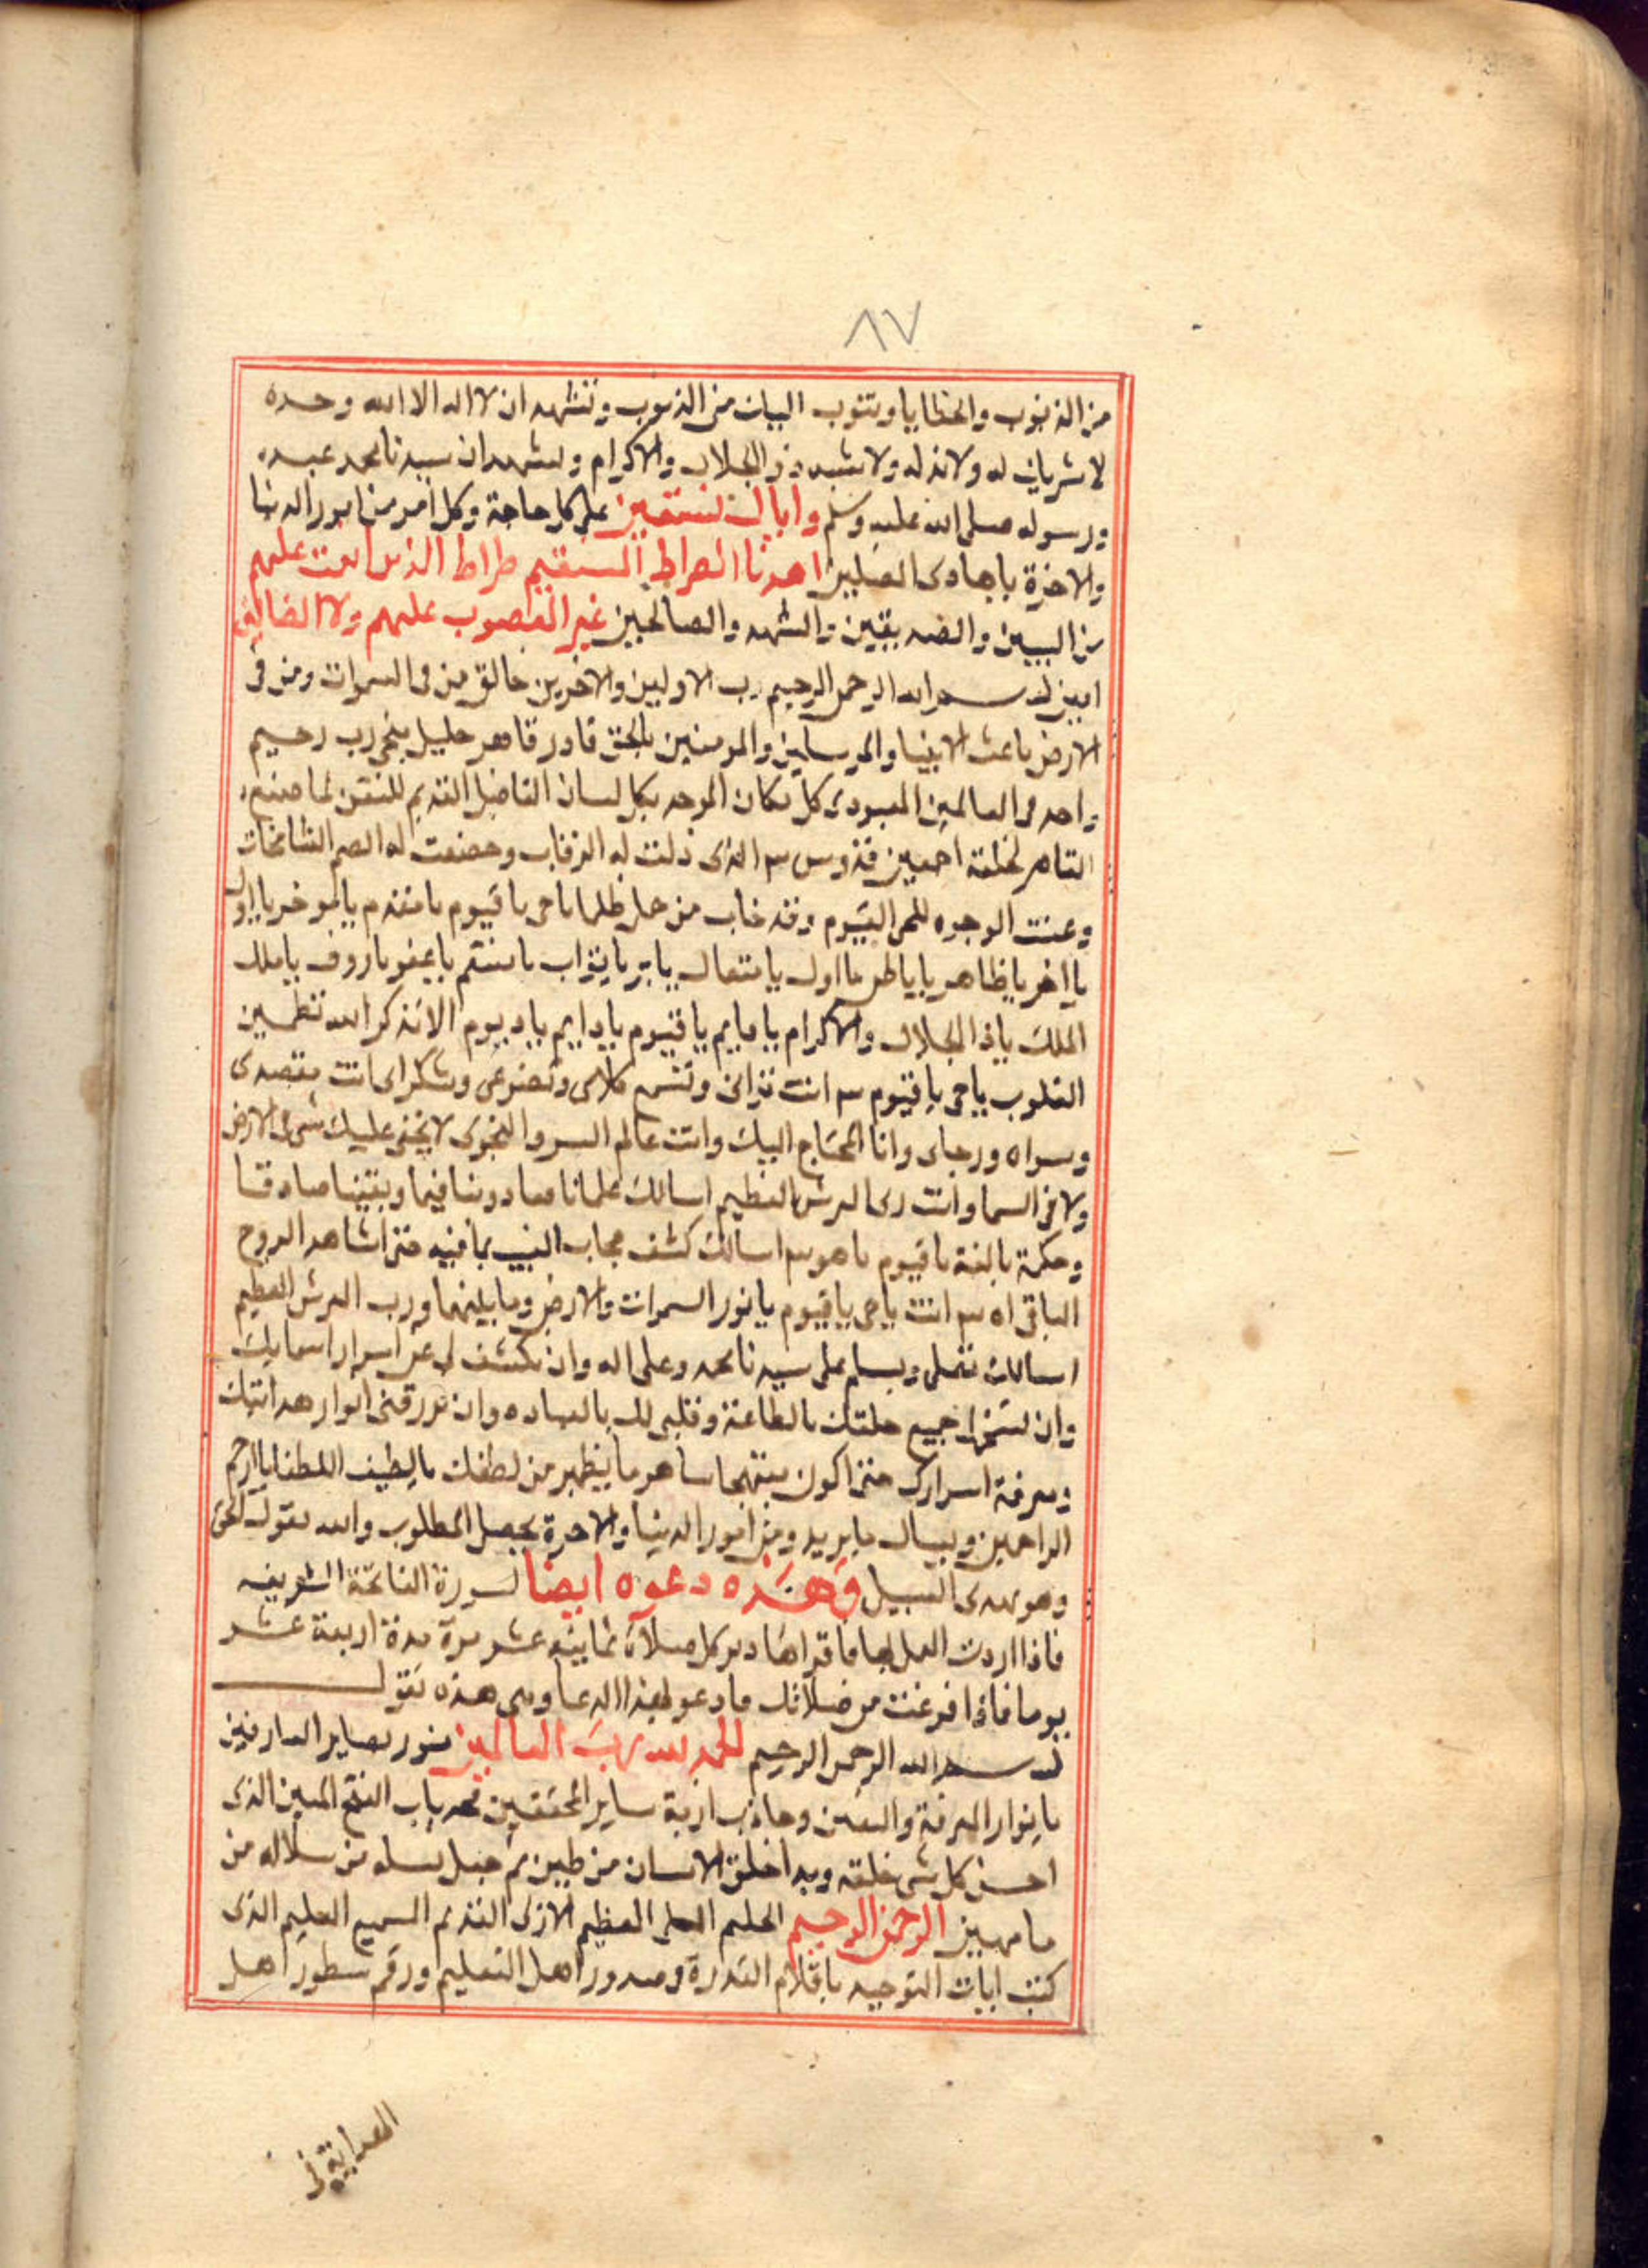 ٨٧
من الذنوب والخطايا ونتوب اليك من الذنوب ونشهد ان لا اله الا الله وحده
لا شريك له ولا ند له ولا شبيه ذو الجلال والاكرام ونشهد ان سيدنا محمد عبده
ورسوله صلى الله عليه وسلم واياك نستعين على كل حاجة وكل امر من امور الدنيا
والاخرة يا هادى المضلين اهدنا الصراط المستقيم صراط الذين انعمت عليهم
من النبيين والصديقين والشهدا والصالحين غير المغضوب عليهم ولا الضالين
امين بسم الله الرحمن الرحيم رب الاولين والاخرين خالق من فى السموات ومن فى
الارض باعث الانبيا والمرسلين والمومنين بالحق قادر قاهر جليل رب رحيم
واحد فى العالمين المعبود فى كل مكان الموحد بكل لسان الفاضل القديم المتقن لما صنعه
القاهر لخلقه اجمعين قدوس الذى ذلت له الرقاب وخضعت له الصم الشامخات
وعنت الوجوه للحى القيوم وقد خاب من حمل ظلما يا حى يا قيوم يا مقدم يا موخر يا اول
يا اخر يا ظاهر يا باطن يا اول يا متعال يا بر يا تواب يا منتقم يا عفو يا روف يا ملك
الملك يا ذا الجلال والاكرام يا قايم يا قيوم يا دايم يا ديوم الا بذكر الله تطمين
القلوب يا حى يا قيوم انت ترانى وتسمع كلامى وتضرعى وشكواى انت مقصدى
وسواه ورجاى وانا المحتاج اليك وانت عالم السر والنجوى لا يخفى عليك شى فى الارض
ولا فى السما وانت رب العرش العظيم اسالك علما نافعا ودينا قيما ويقينا صادقا
وحكمة بالغة يا قيوم يا هو اسالك كشف حجاب الغيب بما فيه حتى اشاهد الروح
الباقى اه انت يا حى يا قيوم يا نور السموات والارض وما بينهما ورب العرش العظيم
اسالك تصلى وتسلم على سيدنا محمد وعلى اله وان تكشف لى عن اسرار اسمايك
وان تسخر لى جميع خلقك بالطاعة وقلبى لك بالعباده وان ترزقنى انوار هدايتك
ومعرفة اسرارك حتى اكون مبتهجا ما يظهر من لطفك يا لطيف الطف بنا يا ارحم
الراحمين ويسال ما يريد ومن امور الدنيا والاخرة يحصل المطلوب والله يقول الحق
وهو يهدى السبيل وهذه دعوه ايضا لسورة الفاتحة الشريفه
فاذا اردت العمل بها فاقراها دبر كل صلاة ثمانيه عشر مرة مدة اربعة عشر
يوما فاذا فرغت من صلاتك فادعو بهذا الدعا وهى هذه تقول
بسم الله الرحمن الرحيم الحمد لله رب العالمين منور بصاير العارفين
بانوار المعرفة واليقين وجاذب ازمة ساير المحققين باب الفتح المبين الذى
احسن كل شى خلقه وبدا خلق الانسان من طين ثم جعل نسله من سلاله من
ما مهين الرحمن الرحيم الحليم العلى العظيم الازلى القديم السميع العليم الذى
كتب ايات التوحيد باقلام القدرة فى صدور اهل التعليم ورقم سطور اهل
الهداية فى